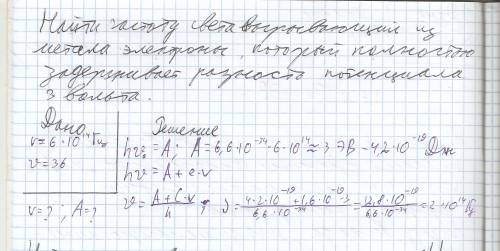 Найти частоту света вырывающий из
метала электроны, который полностью
задерживает разность потенциала
3 вольта.
Дано
ν=6·10¹⁴Гц
v=3б
ν=? ; A=?
Решение
hν₀=A; A=6,6·10⁻³⁴·6·10¹⁴≈3 эВ-4,2·10⁻¹⁹Дж
hν=A+e·v
ν=(A+C·v)/h; ν=(4·2·10⁻¹⁹+1,6·10⁻¹⁹·3)/(6,6·10⁻³⁴)=(12,8·10⁻¹⁹)/(6,6·10⁻³⁴)=2·10¹⁴Гц